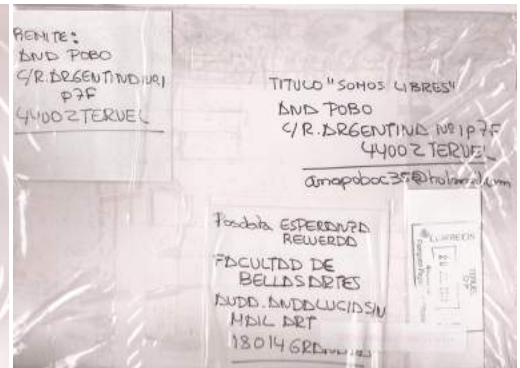 REMITE:
ANA POBO
C/R. ARGENTINA Nº1
P7F
44002 TERUEL
TITULO "SOMOS LIBRES"
ANA POBO
C/R. ARGENTINA Nº1 P7F
44002 TERUEL
Posdata ESPERANZA
RECUERDA
FACULTAD DE
BELLAS ARTES
AVDA. ANDALUCIA S/N
MAIL ART
18014 GRANADA
CORREOS
TERUEL